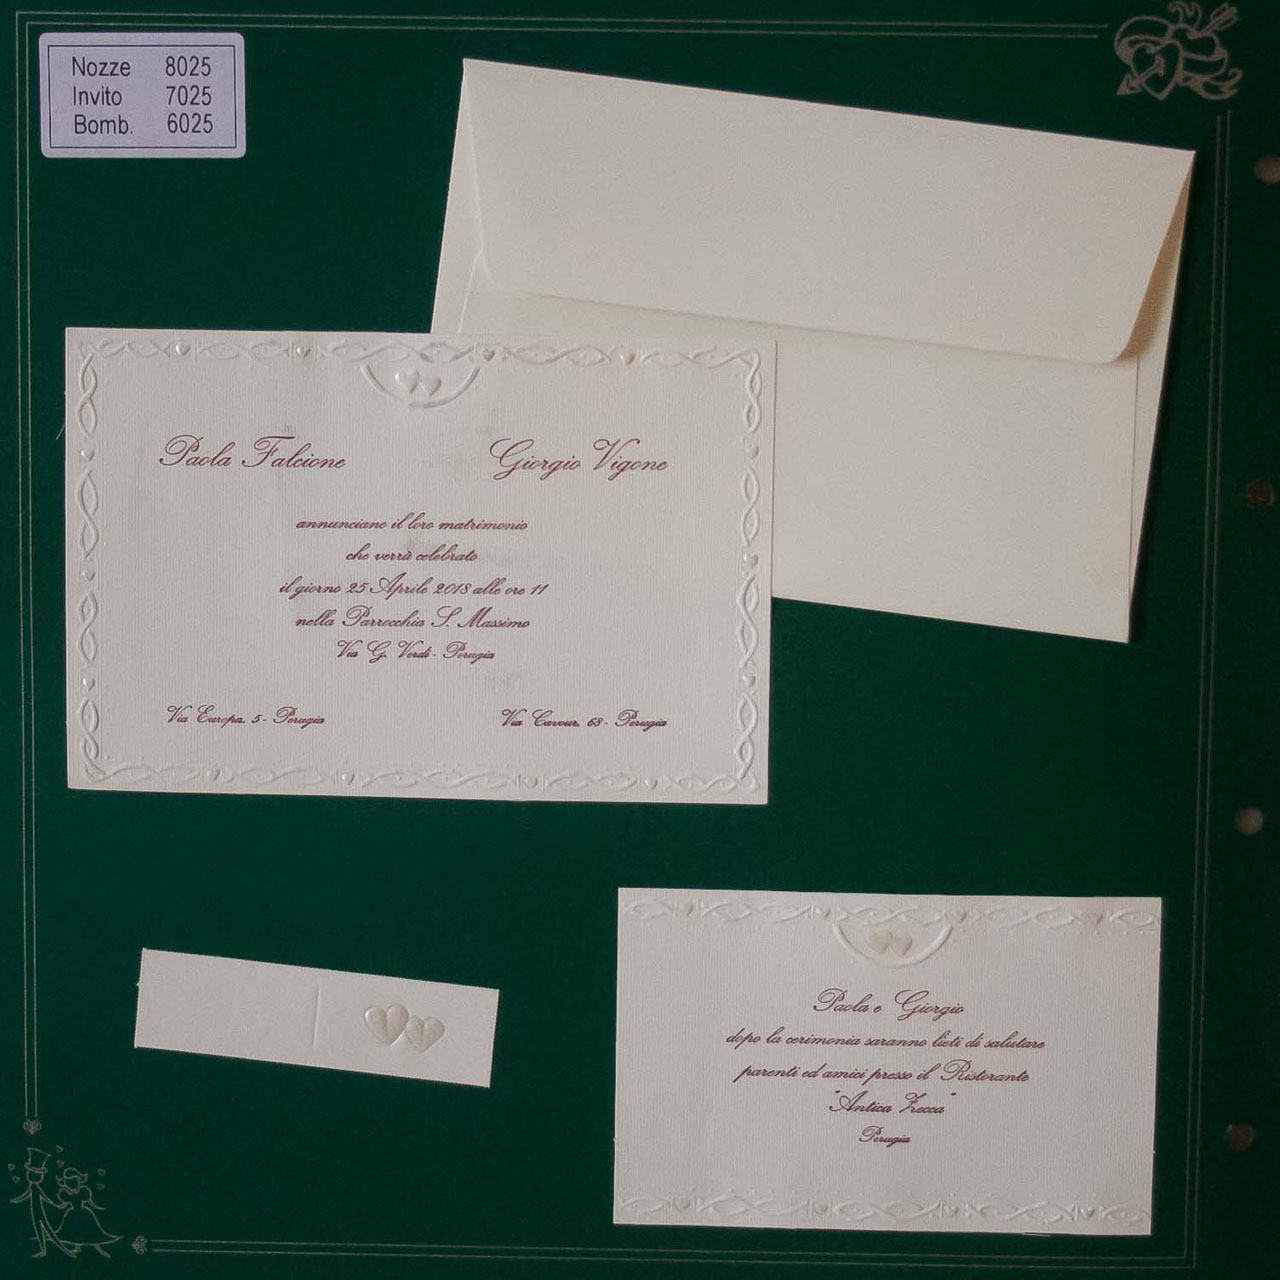 Nozze 8025
Invito 7025
Bomb. 6025
Paola Falcione Giorgio Vigone
annunciano il loro matrimonio
che verrà celebrato
il giorno 25 Aprile 2018 alle ore 11
nella Parrocchia S. Massimo
Via G. Verdi - Perugia
Via Europa, 5 - Perugia Via Cavour, 68 - Perugia
Paola e Giorgio
dopo la cerimonia saranno lieti di salutare
parenti ed amici presso il Ristorante
"Antica Zecca"
Perugia